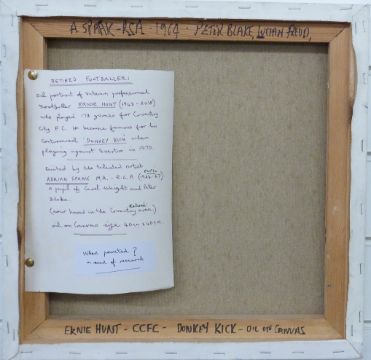 A SPARK - RCA 1964 - PETER BLAKE, LUCIAN FREUD,
RETIRED FOOTBALLER:
Oil portrait of veteran professional
footballer ERNIE HUNT
who played games for Coventry
City F.C. He became famous for his
controversial 'DONKEY KICK' when
playing against Everton in 1970.
Painted by the talented artist
ADRIAN SPARK M.A. - R.C.A
A pupil of Carel Weight and Peter
Blake
(now based in the Coventry area)
oil on Canvas size
When painted?
in need of research
ERNIE HUNT - CCFC - DONKEY KICK - OIL ON CANVAS